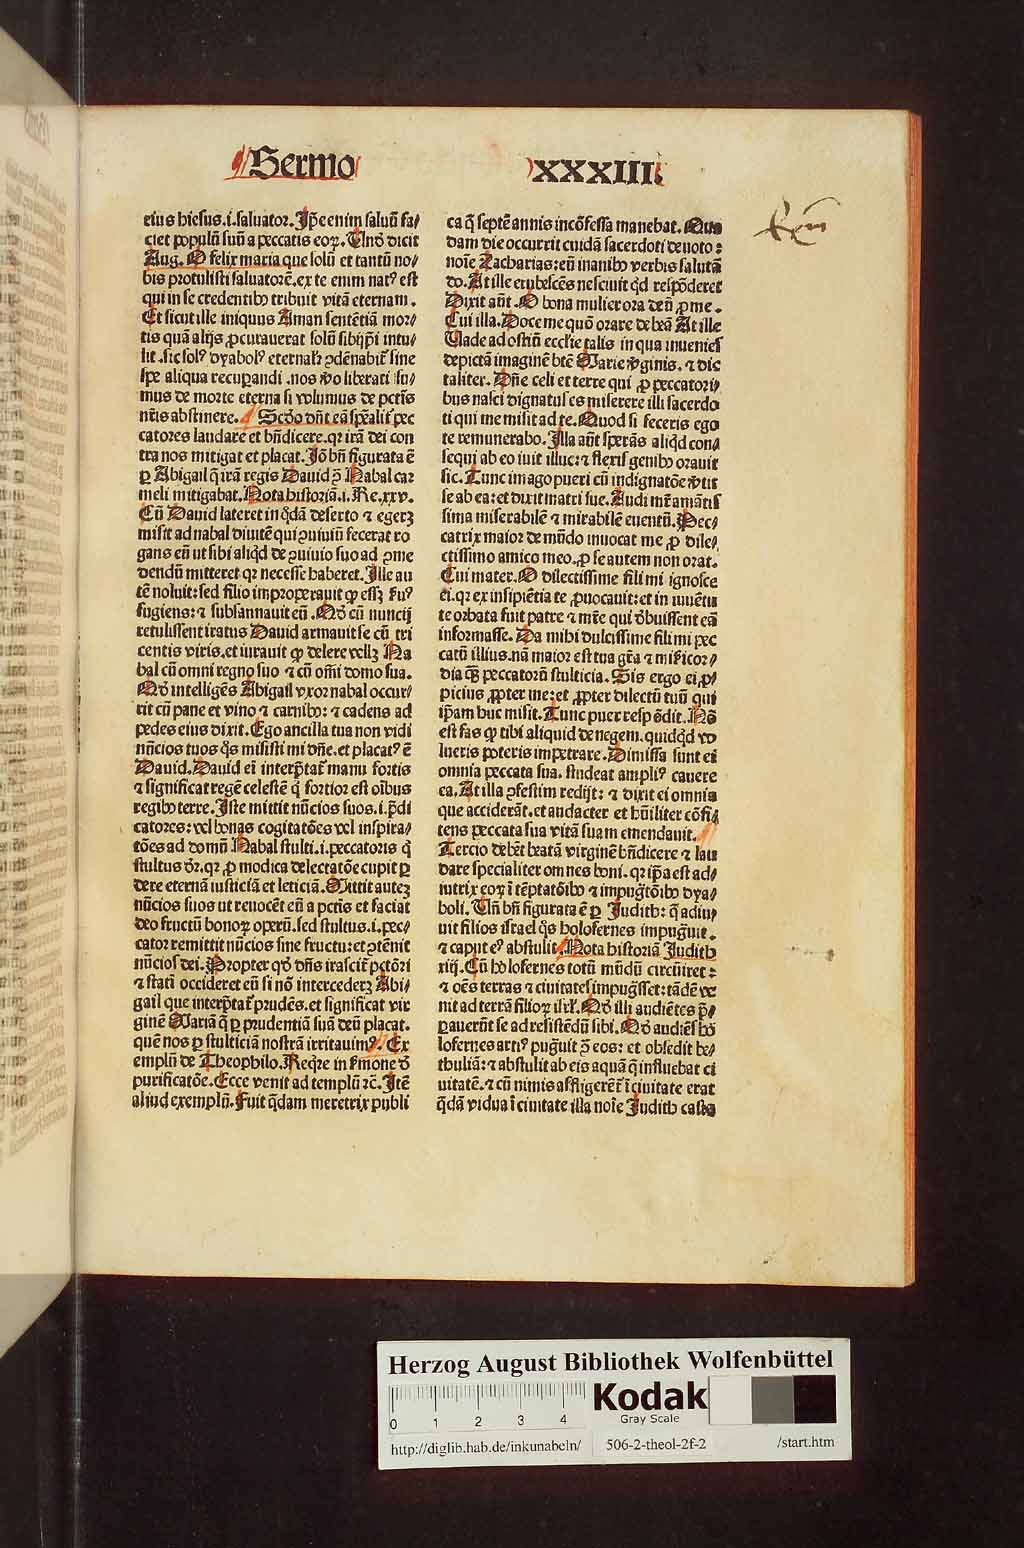 Sermo XXXIII.
eius hiesus.i.saluator.Ip̄e enim saluū fa/
ciet populū suū a peccatis eoꝝ. Un̄ dicit
Aug. O felix maria que solū et tantū no/
bis protulisti saluatorē.ex te enim natꝰ est
qui in se credentibꝫ tribuit vitā eternam.
Et sicut ille iniquus Aman sentētiā mor/
tis quā alijs ꝓcurauerat solū sibijp̄i intu/
lit .sic solꝰ dyabolꝰ eternalr̄ ꝯdēnabit̄ sine
spe aliqua recuꝑandi .nos v̄o liberati su/
mus de morte eterna si volumus de pctīs
nr̄is abstinere. Scd̓o dn̄t eā sp̄ealit̄ pec
catores laudare et bn̄dicere.qr irā dei con
tra nos mitigat et placat. Iō bn̄ figurata ē
ꝑ Abigail q̄ irā regis Dauid ꝯ̄ Nabal car
meli mitigabat. Nota historiā.i.Re.xxv.
Cū Dauid lateret in q̄dā deserto ⁊ egerꝫ
misit ad nabal diuitē qui ꝯuiuiū fecerat ro
gans eū ut sibi aliqd̄ de ꝯuiuio suo ad ꝯme
dendū mitteret qr necesse haberet. Ille au
tē noluit: sed filio improperauit ꝙ essꝫ ẜuꝰ
fugiens: ⁊ subsannauit eū. Qd̓ cū nuncij
retulissent iratus Dauid armauit se cū tri
centis viris.et iurauit ꝙ delere vellꝫ Na
bal cū omni regno suo ⁊ cū om̄i domo sua.
Qd̓ intelligēs Abigail vxor nabal occur/
rit cū pane et vino ⁊ carnibꝫ: ⁊ cadens ad
pedes eius dixit. Ego ancilla tua non vidi
nūcios tuos q̄s misisti mi dn̄e.et placatꝰ ē
Dauid. Dauid ei interp̄tat̄ manu fortis
⁊ significat regē celestē q̄ fortior est oībus
regibꝫ terre. Iste mittit nūcios suos.i.p̄di
catores: vel bonas cogitatōes vel inspira/
tōes ad domū Nabal stulti.i.peccatoris q̄
stultus dr̄.qr ꝓ modica delectatōe cupit ꝑ
dere eternā iusticiā et leticiā. Mittit auteꝫ
nūcios suos ut reuocēt eū a pctīs et faciat
deo fructū bonoꝝ operū.sed stultus.i.pec/
cator remittit nūcios sine fructu: et ꝯtēnit
nūcios dei. Propter qd̓ dn̄s irascit̄ pctōri
⁊ statī occideret eū si nō intercederꝫ Abi/
gail que interp̄tat̄ prudēs.et significat vir
ginē Mariā q̄ ꝑ prudentiā suā deū placat.
quē nos ꝑ stulticiā nostrā irritauimꝰ. Ex
emplū de Theophilo. Reqͥre in ẜmone d̓
purificatōe. Ecce venit ad templū ⁊c̄. Itē
aliud exemplū. Fuit q̄dam meretrix publi
ca q̄ septē annis incōfessa manebat. Quo
dam die occurrit cuidā sacerdoti deuoto :
noīe Zacharias: eū inanibꝫ verbis salutā
do. At ille erubescēs nesciuit qd̄ respōderet
Dixit aūt. O bona mulier ora deū ꝓ me .
Cui illa. Doce me quō orare debeā At ille
Vade ad ostiū ecclīe talis in qua inuenies
depictā imaginē btē Marie v̓ginis. ⁊ dic
taliter. Dn̄e celi et terre qui ꝓ peccatori/
bus nasci dignatus es miserere illi sacerdo
ti qui me misit ad te. Quod si feceris ego
te remunerabo. Illa aūt sperās aliqd̄ con/
sequi ab eo iuit illuc: ⁊ flexis genibꝫ orauit
sic. Tunc imago pueri cū indignatōe v̓tit
se ab ea: et dixit matri sue. Audi mr̄ amātis
sima miserabilē ⁊ mirabilē euentū. Pec/
catrix maior de mūdo inuocat me ꝓ dile/
ctissimo amico meo. ꝓ se autem non orat.
Cui mater. O dilectissime fili mi ignosce
ei.qr ex insipiētia te ꝓuocauit: et in iuuētu
te orbata fuit patre ⁊ mr̄e qui d̓buissent eā
informasse. Da mihi dulcissime fili mi pec
catū illius.nā maior est tua gr̄a ⁊ mīsericor/
dia qꝫ peccatorū stulticia. Sis ergo ei ꝓ/
picius ꝓpter me: et ꝓpter dilectū tuū qui
ip̄am huc misit. Tunc puer respōdit. Nō
est fas ꝙ tibi aliquid denegem. quidqd̄ vo
lueris poteris impetrare. Dimissa sunt ei
omnia peccata sua. studeat ampliꝰ cauere
ea. At illa ꝯfestim redijt: ⁊ dixit ei omnia
que acciderāt.et audacter et hūiliter cōfi/
tens peccata sua vitā suam emendauit.
Tercio debēt beatā virginē bn̄dicere ⁊ lau
dare specialiter omnes boni. qr ip̄a est ad/
iutrix eoꝝ ī tēptatōibꝫ ⁊ impuḡtōibꝫ dya/
boli. Un̄ bn̄ figurata ē ꝑ Judith: q̄ adiu/
uit filios israel q̄s holofernes impuḡuit .
⁊ caput eꝰ abstulit. Nota historiā Judith
xiij. Cū holofernes totū mūdū circūiret :
⁊ oēs terras ⁊ ciuitates impuḡsset: tādē ve
nit ad terrā filioꝝ isrl̄. Qd̓ illi audiētes p̄/
ꝑauerūt se ad resistēdū sibi. Qd̓ audiēs ho
lofernes artiꝰ puḡuit ꝯ̄ eos: et obsedit be/
thuliā: ⁊ abstulit ab eis aquā q̄ influebat ci
uitatē. ⁊ cū nimis affligerēt̄ ī ciuitate erat
q̄dā vidua ī ciuitate illa noīe Judith casta
Herzog August Bibliothek Wolfenbüttel
0 1 2 3 4
Kodak
Gray Scale
http://diglib.hab.de/inkunabeln/ 506-2-theol-2f-2 /start.htm